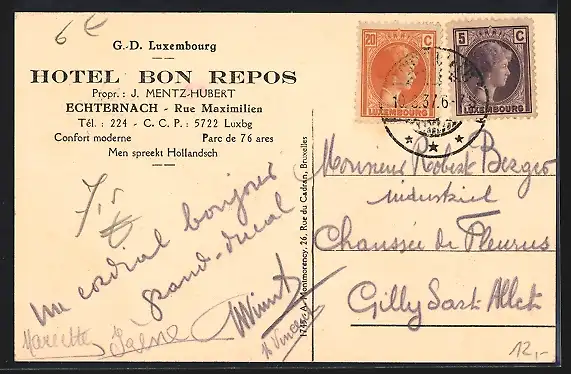 6 €
G.-D. Luxembourg
HOTEL BON REPOS
Propr. : J. MENTZ-HUBERT
ECHTERNACH - Rue Maximilien
Tél. : 224 - C. C. P. : 5722 Luxbg
Confort moderne Parc de 76 ares
Men spreekt Hollandsch
20 C
LUXEMBOURG
5 C
LUXEMBOURG
37.6-
Monsieur Robert Berger
industriel
Chaussée de Fleurus
Gilly Sart Allet
Un cordial bonjour
grand-ducal
Marcette
A. Montmorency, 26, Rue du Cadran, Bruxelles
12,-